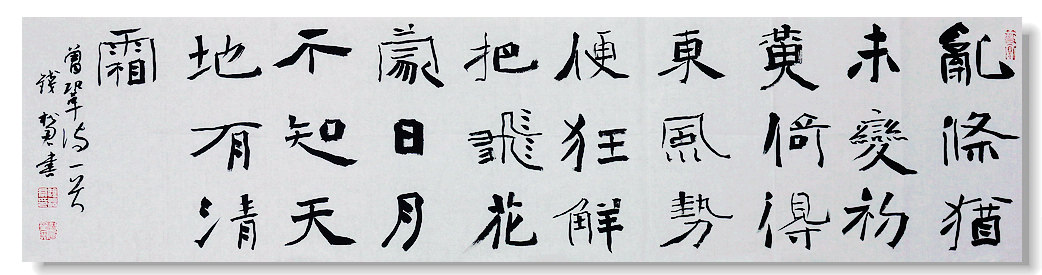 亂條猶
未變初
黃倚得
東風勢
便狂解
把飛花
蒙日月
不知天
地有清
霜
曾鞏詩一首
錢書